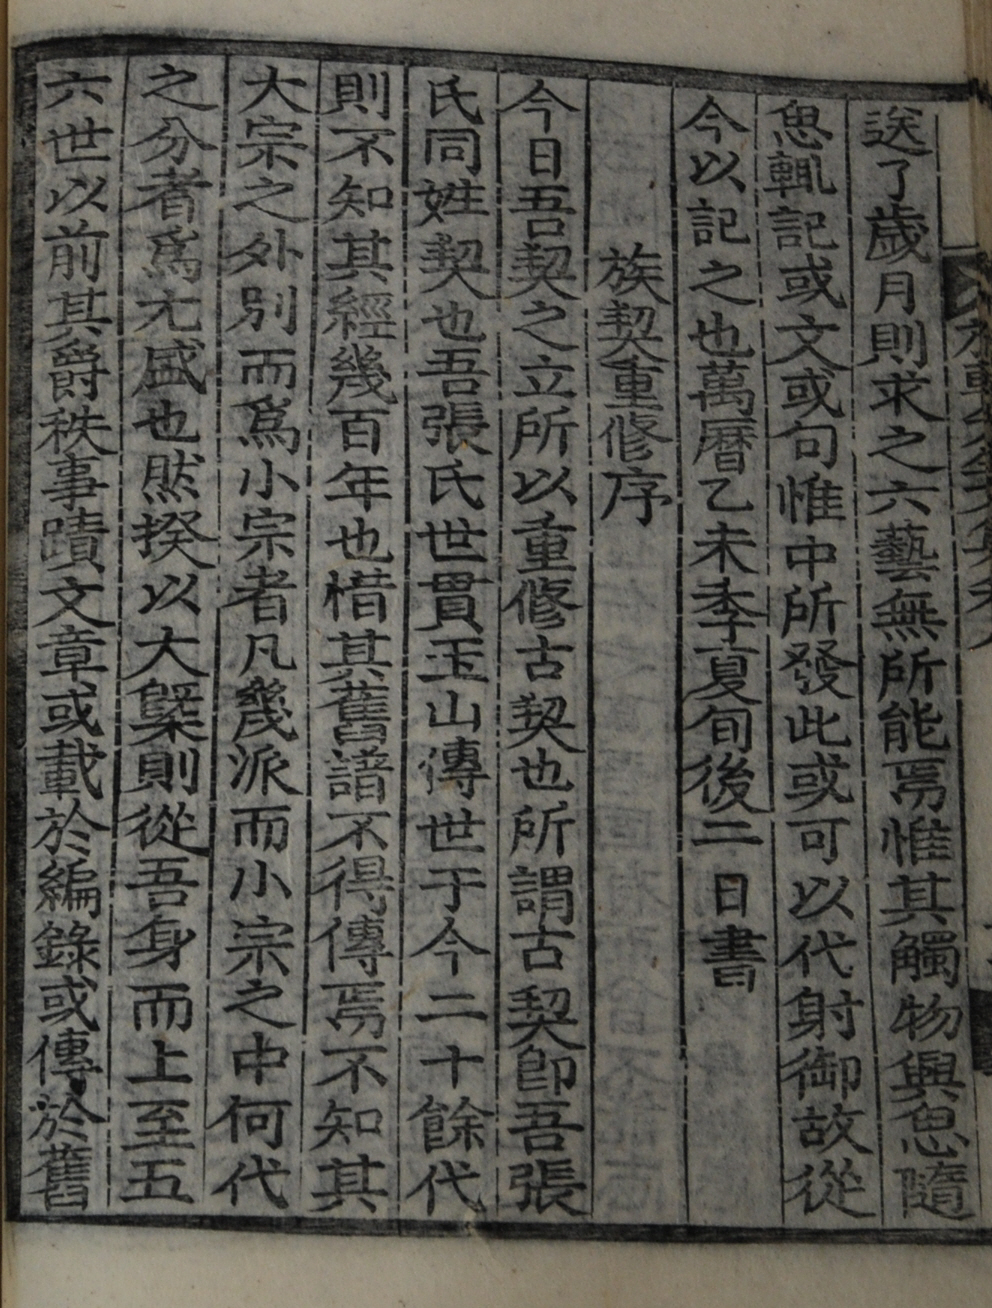 送了歲月則求之六藝無所能焉惟其觸物興思隨
思輒記或文或句惟中所發此或可以代射御故從
今以記之也萬曆乙未季夏旬後二日書
族契重修序
今日吾契之立所以重修古契也所謂古契卽吾張
氏同姓契也吾張氏世貫玉山傳世于今二十餘代
則不知其經幾百年也惜其舊譜不得傳焉不知其
大宗之外別而爲小宗者凡幾派而小宗之中何代
之分者爲尤盛也然揆以大槩則從吾身而上至五
六世以前其爵秩事蹟文章或載於編錄或傳於舊